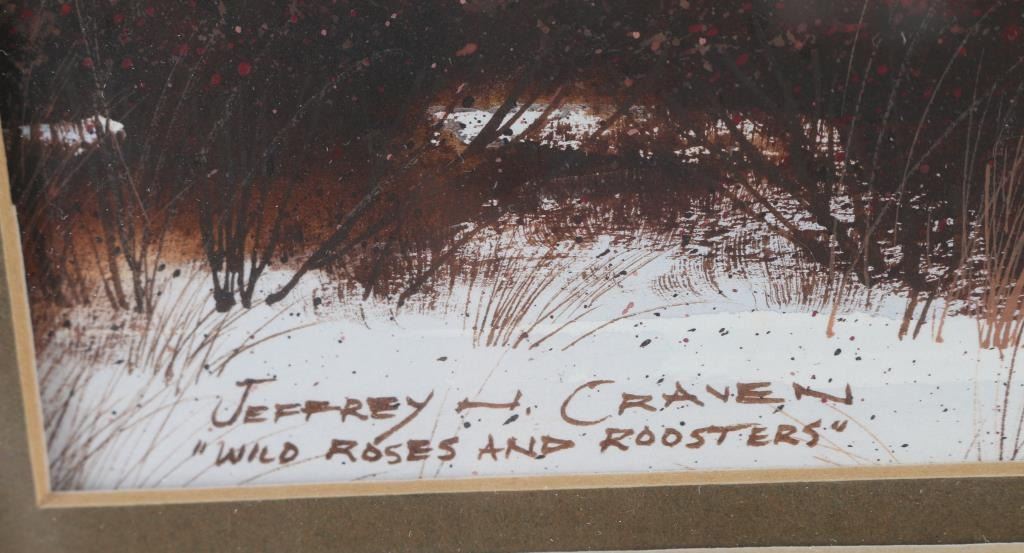 JEFFREY N. CRAVEN
"WILD ROSES AND ROOSTERS"